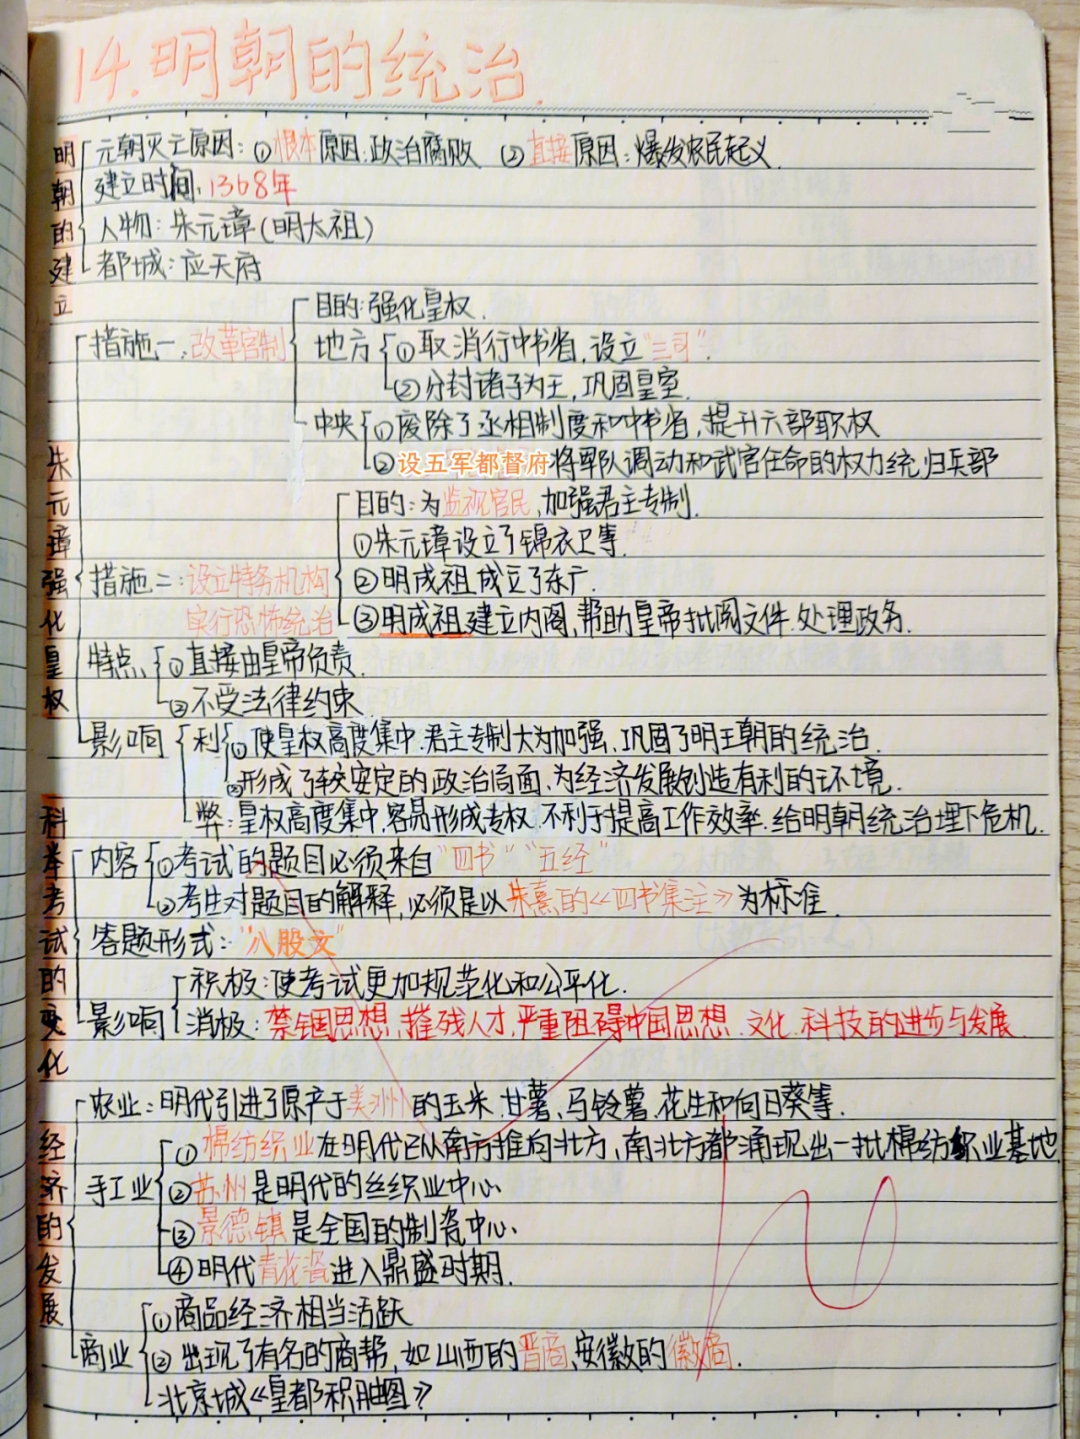 14.明朝的统治.
明朝的建立
元朝灭亡原因:①根本原因:政治腐败 ②直接原因:爆发农民起义.
建立时间:1368年
人物:朱元璋(明太祖)
都城:应天府
朱元璋强化皇权
措施一:改革官制
目的:强化皇权.
地方 ①取消行中书省,设立"三司".
②分封诸子为王,巩固皇室.
中央 ①废除了丞相制度和中书省,提升六部职权
②设五军都督府将军队调动和武官任命的权力统归兵部
措施二:设立特务机构
实行恐怖统治
目的:为监视官民,加强君主专制.
①朱元璋设立了锦衣卫等.
②明成祖成立了东厂.
③明成祖建立内阁,帮助皇帝批阅文件.处理政务.
特点 ①直接由皇帝负责.
②不受法律约束.
影响 利 ①使皇权高度集中.君主专制大为加强,巩固了明王朝的统治.
②形成了较安定的政治局面,为经济发展创造有利的环境.
弊:皇权高度集中,容易形成专权.不利于提高工作效率.给明朝统治埋下危机.
科举考试的变化
内容 ①考试的题目必须来自"四书""五经"
②考生对题目的解释,必须是以朱熹的《四书集注》为标准.
答题形式:"八股文"
影响 积极:使考试更加规范化和公平化.
消极:禁锢思想,摧残人才,严重阻碍中国思想.文化.科技的进步与发展.
经济的发展
农业:明代引进了原产于美洲的玉米.甘薯、马铃薯.花生和向日葵等.
手工业 ①棉纺织业在明代已从南方推向北方,南北方都涌现出一批棉纺织业基地.
②苏州是明代的丝织业中心.
③景德镇是全国的制瓷中心.
④明代青花瓷进入鼎盛时期.
商业 ①商品经济相当活跃
②出现了有名的商帮,如山西的晋商、安徽的徽商.
北京城《皇都积胜图》